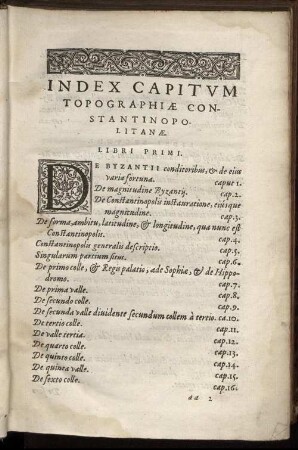 INDEX CAPITVM
TOPOGRAPHIÆ CON-
STANTINOPO-
LITANÆ.
LIBRI PRIMI.
DE BYZANTII conditoribus, & de eius
varia fortuna. caput 1.
De magnitudine Byzantij. cap.2.
De Constantinopolis instauratione, eiúsque
magnitudine. cap.3.
De forma, ambitu, latitudine, & longitudine, qua nunc est
Constantinopolis. cap.4.
Constantinopolis generalis descriptio. cap.5.
Singularum partium situs. cap.6.
De primo colle, & Regu palatio, æde Sophiæ, & de Hippo-
dromo. cap.7.
De prima valle. cap.8.
De secundo colle. cap.9.
De secunda valle diuidente secundum collem à tertio. ca.10.
De tertio colle. cap.11.
De valle tertia. cap.12.
De quarto colle. cap.13.
De quinto colle. cap.14.
De quinta valle. cap.15.
De sexto colle. cap.16.
dd 2